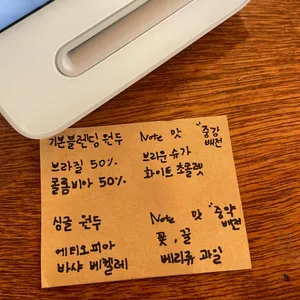 기본블렌딩 원두 Note 맛 "중강배전"
브라질 50% 브라운 슈가
콜롬비아 50% 화이트 초콜렛
싱글 원두 Note 맛 "중약배전"
에티오피아 꽃, 꿀
바샤 베켈레 베리류 과일